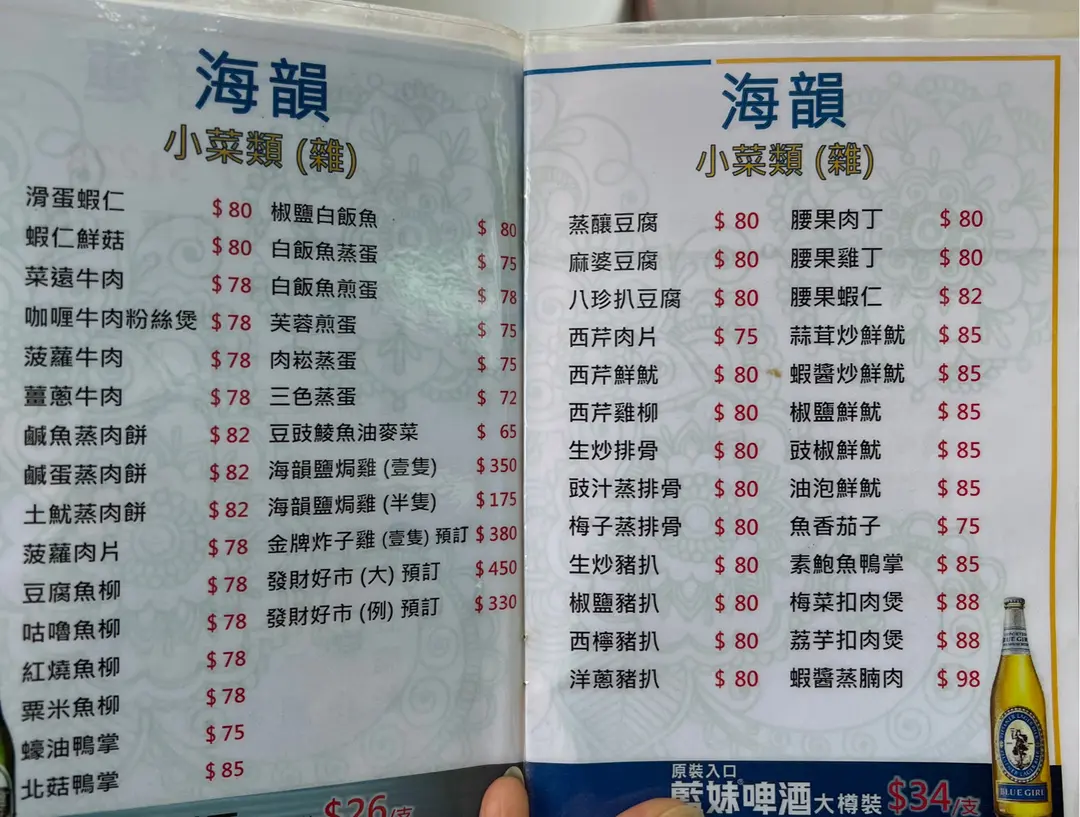 海韻
小菜類 (雜)
滑蛋蝦仁 $80
蝦仁鮮菇 $80
菜遠牛肉 $78
咖喱牛肉粉絲煲 $78
菠蘿牛肉 $78
薑蔥牛肉 $78
鹹魚蒸肉餅 $82
鹹蛋蒸肉餅 $82
土魷蒸肉餅 $82
菠蘿肉片 $78
豆腐魚柳 $78
咕嚕魚柳 $78
紅燒魚柳 $78
粟米魚柳 $78
蠔油鴨掌 $75
北菇鴨掌 $85
椒鹽白飯魚 $80
白飯魚蒸蛋 $75
白飯魚煎蛋 $78
芙蓉煎蛋 $75
肉崧蒸蛋 $75
三色蒸蛋 $72
豆豉鯪魚油麥菜 $65
海韻鹽焗雞 (壹隻) $350
海韻鹽焗雞 (半隻) $175
金牌炸子雞 (壹隻) 預訂 $380
發財好市 (大) 預訂 $450
發財好市 (例) 預訂 $330
$26/支
海韻
小菜類 (雜)
蒸釀豆腐 $80
麻婆豆腐 $80
八珍扒豆腐 $80
西芹肉片 $75
西芹鮮魷 $80
西芹雞柳 $80
生炒排骨 $80
豉汁蒸排骨 $80
梅子蒸排骨 $80
生炒豬扒 $80
椒鹽豬扒 $80
西檸豬扒 $80
洋蔥豬扒 $80
腰果肉丁 $80
腰果雞丁 $80
腰果蝦仁 $82
蒜茸炒鮮魷 $85
蝦醬炒鮮魷 $85
椒鹽鮮魷 $85
豉椒鮮魷 $85
油泡鮮魷 $85
魚香茄子 $75
素鮑魚鴨掌 $85
梅菜扣肉煲 $88
荔芋扣肉煲 $88
蝦醬蒸腩肉 $98
原裝入口
藍妹啤酒大樽裝 $34/支
BLUE GIRL